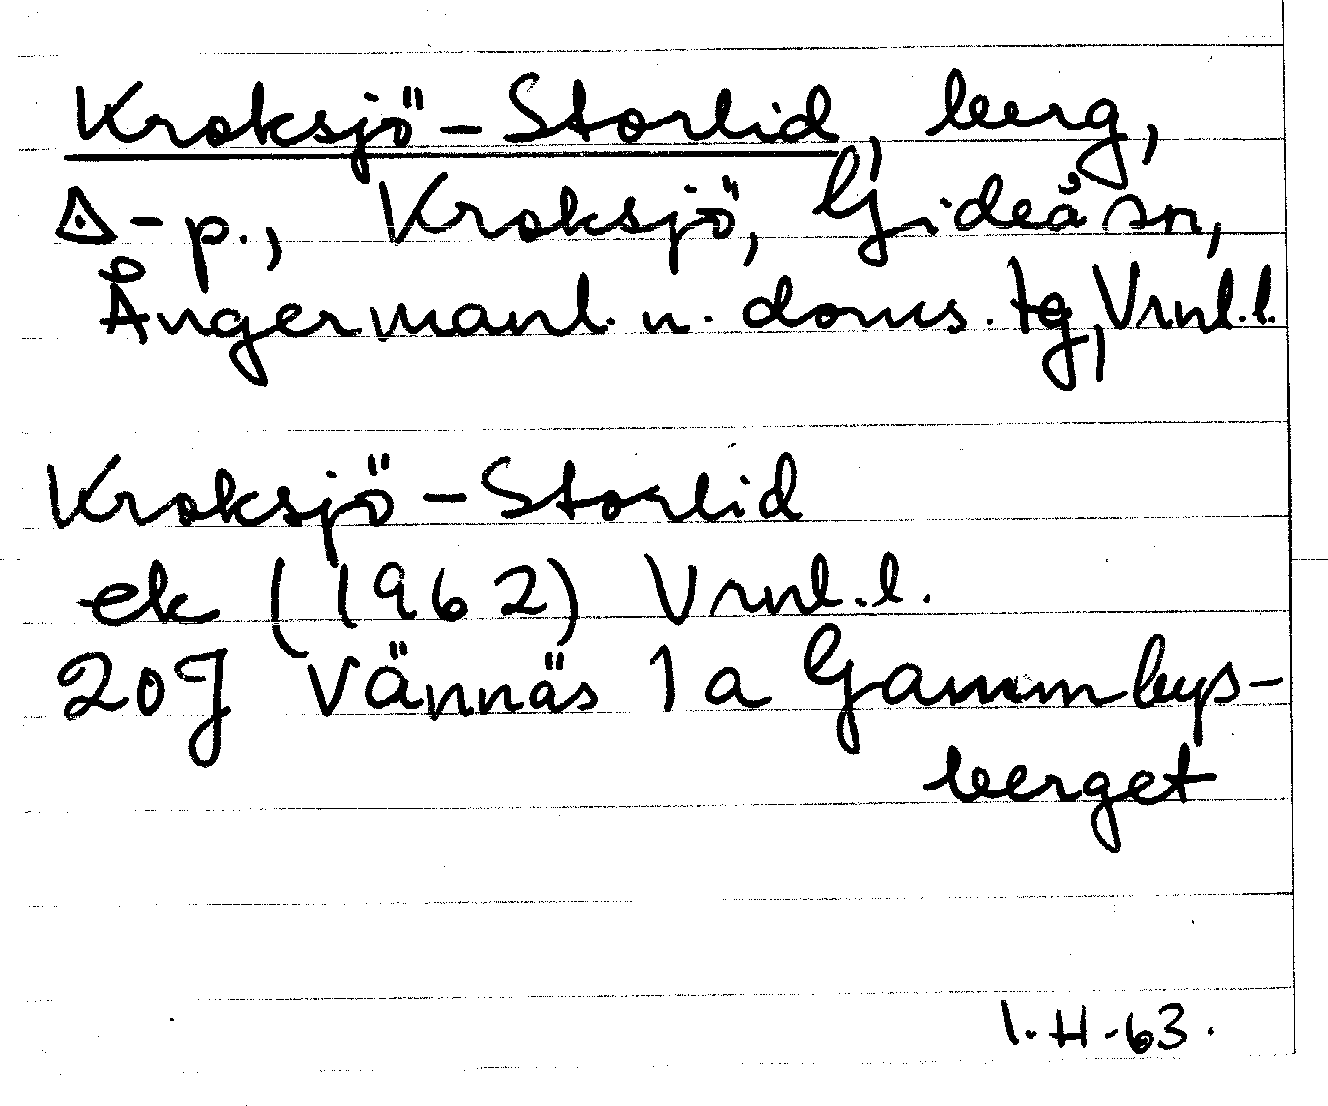 Kroksjö-Storlid, berg,
△-p., Kroksjö, Gideå sn,
Ångermanl. n. doms. tg, Vrnl.l.
Kroksjö-Storlid
ek (1962) Vrnl.l.
20J Vännäs 1a Gammbys-
berget
I.H-63.